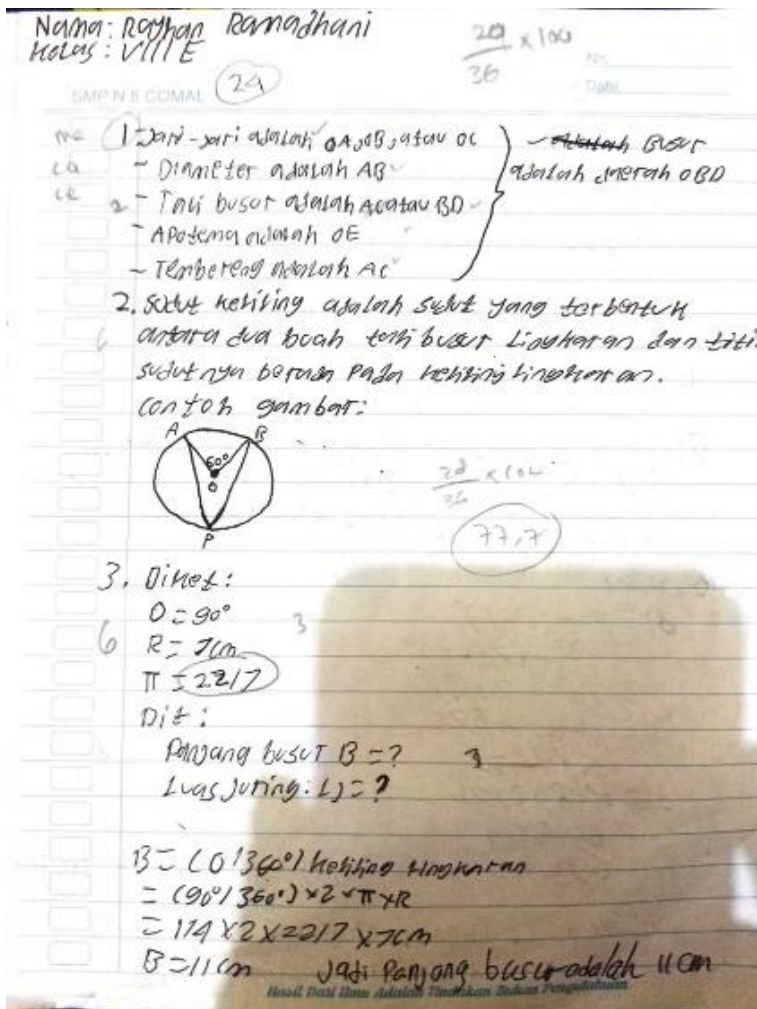 Nama: Rayhan Ramadhani
Kelas: VIII E
No.
Date
SMP N 5 COMAL
24
28/36 x 100
1 Jari-jari adalah OA, OB, atau OC
- Diameter adalah AB
- Tali busur adalah AC atau BD
- Apotema adalah OE
- Tembereng adalah AC
- Busur
adalah daerah OBD
2. Sudut keliling adalah sudut yang terbentuk
antara dua buah tali busur Lingkaran dan titi
sudutnya berada Pada keliling lingkaran.
contoh gambar:
A
B
60°
O
P
28/36 x 100
77,7
3. Diket:
O = 90°
R = 7cm
π = 22/7
3
6
Dit:
Panjang busur B = ?
Luas Juring: LJ = ?
3
B = (O/360°) keliling lingkaran
= (90°/360°) x 2 x π x R
= 1/4 x 2 x 22/7 x 7cm
B = 11 cm Jadi Panjang busur adalah 11 cm
Hasil Dari Ilmu Adalah Tindakan Bukan Pengetahuan